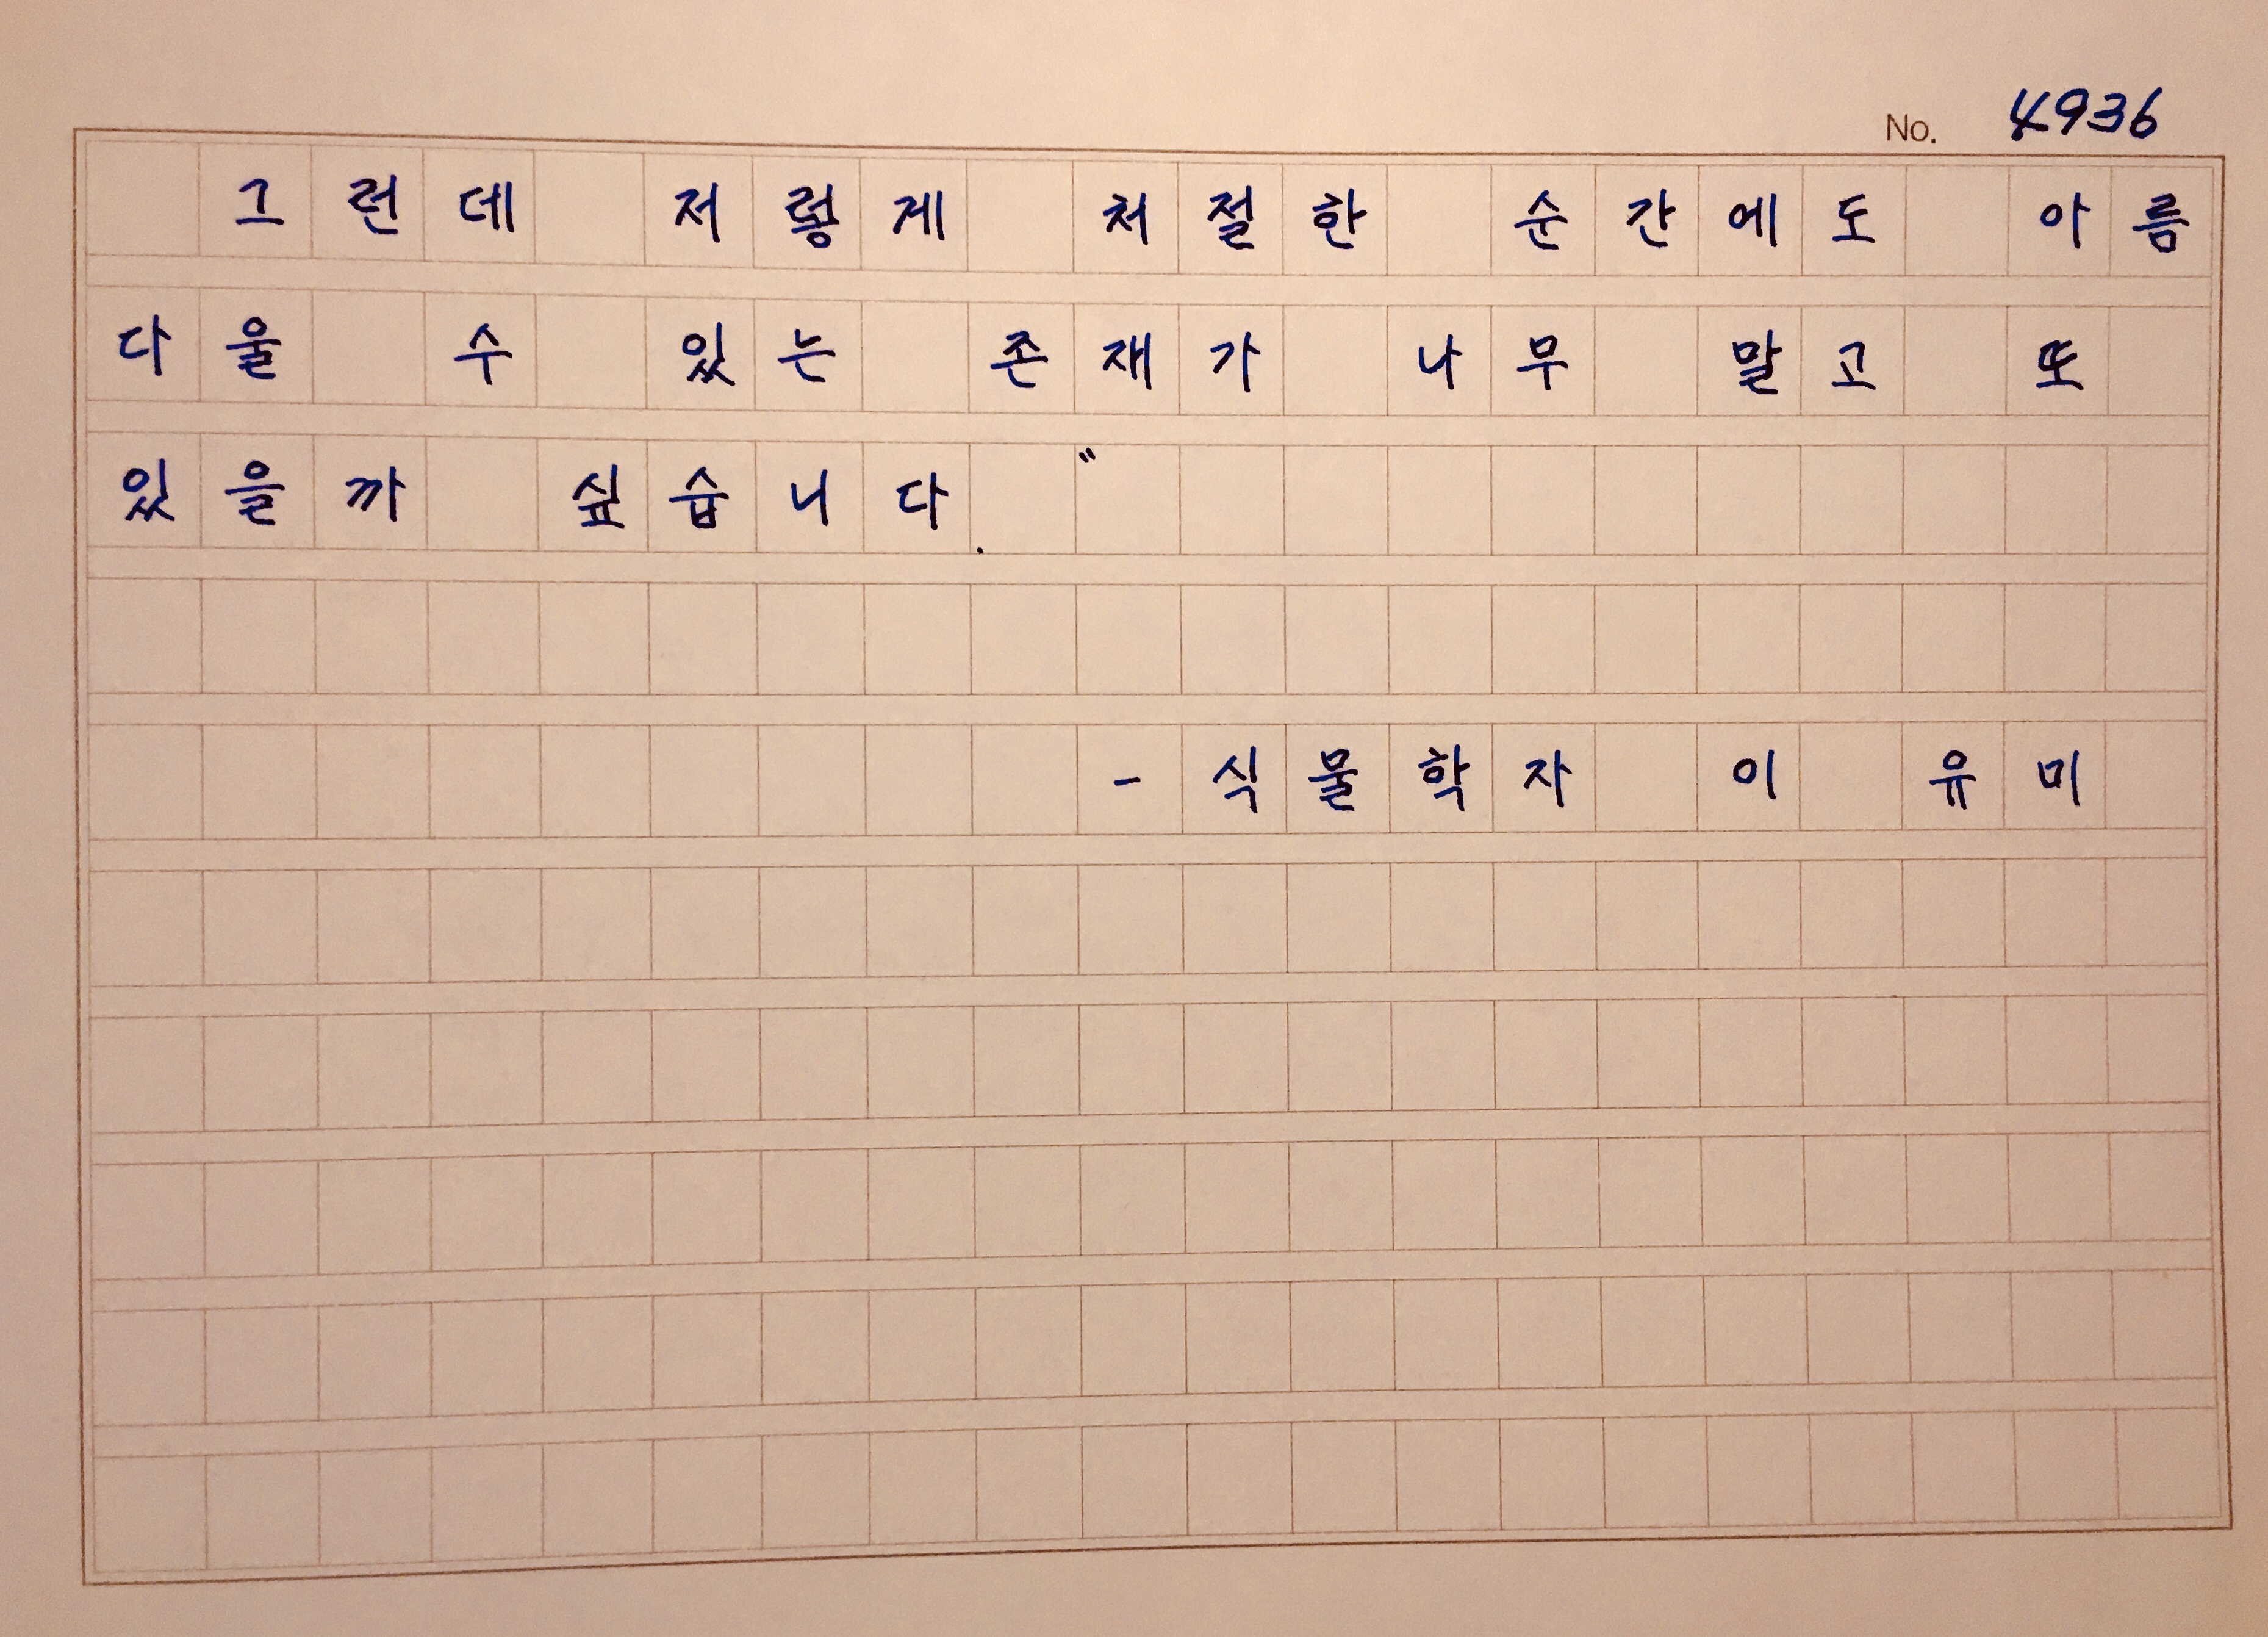 No. 4936
그런데 저렇게 처절한 순간에도 아름
다울 수 있는 존재가 나무 말고 또
있을까 싶습니다."
- 식물학자 이 유미